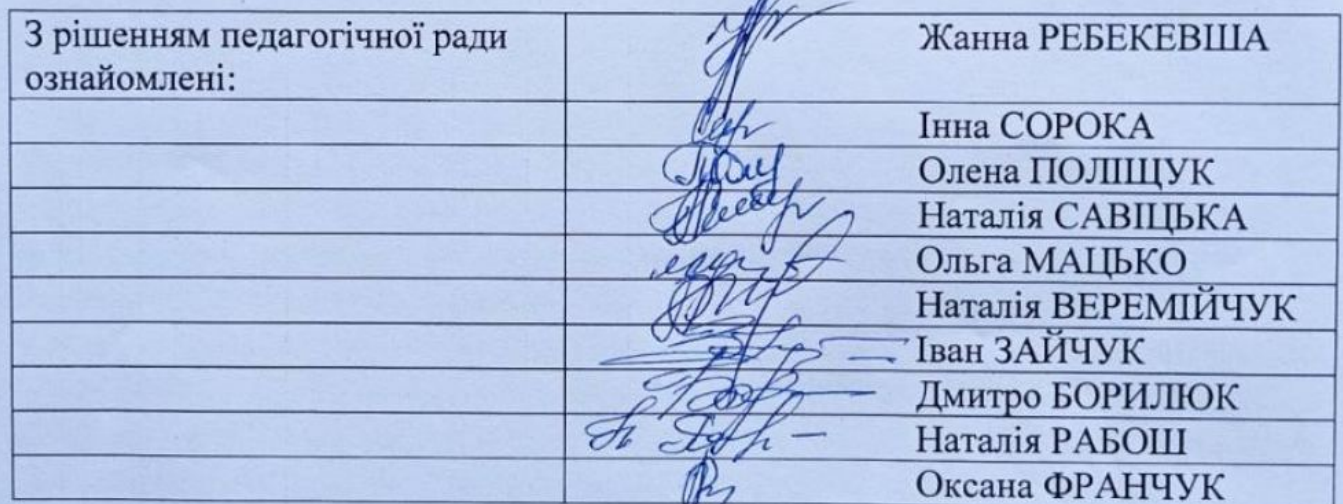 З рішенням педагогічної ради Жанна РЕБЕКЕВША
ознайомлені:
Інна СОРОКА
Олена ПОЛІЩУК
Наталія САВІЦЬКА
Ольга МАЦЬКО
Наталія ВЕРЕМІЙЧУК
Іван ЗАЙЧУК
Дмитро БОРИЛЮК
Наталія РАБОШ
Оксана ФРАНЧУК